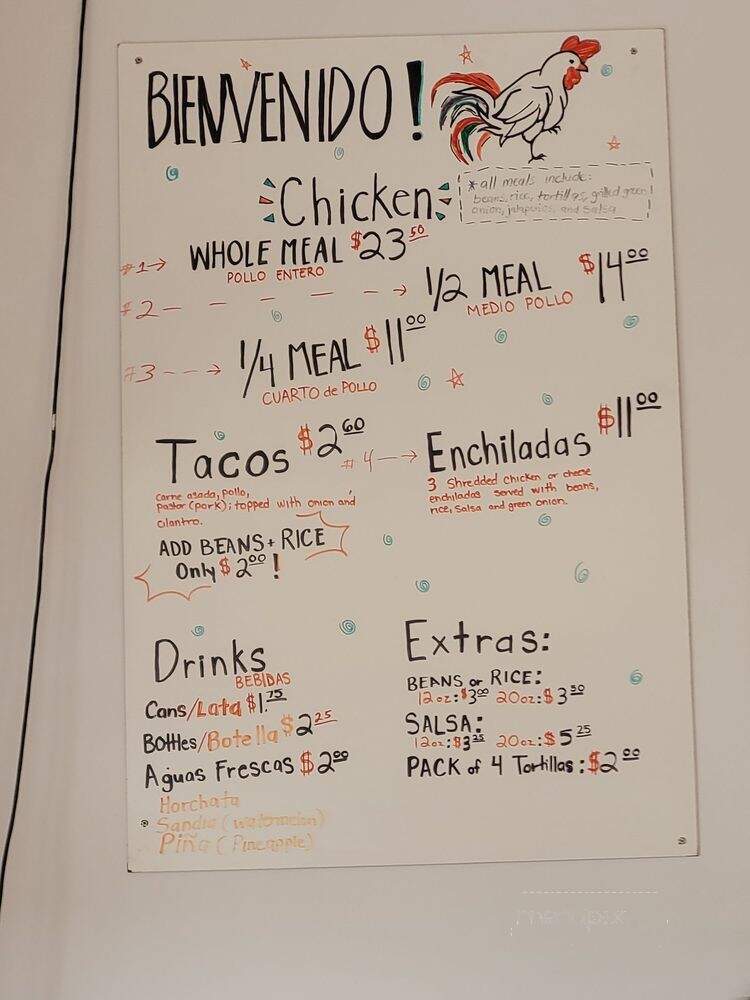 BIENVENIDO!
Chicken
*all meals include:
beans, rice, tortillas, grilled green
onion, jalapeños, and salsa
#1→ WHOLE MEAL $23 50
POLLO ENTERO
#2 - - - - - → 1/2 MEAL $14 00
MEDIO POLLO
#3 - - → 1/4 MEAL $11 00
CUARTO de POLLO
Tacos $2 60
carne asada, pollo,
pastor (pork); topped with onion and
cilantro.
ADD BEANS + RICE
Only $2 00 !
#4 - → Enchiladas $11 00
3 Shredded chicken or cheese
enchiladas served with beans,
rice, salsa and green onion.
Drinks
BEBIDAS
Cans/Lata $1.75
Bottles/Botella $2 25
Aguas Frescas $2 00
Horchata
Sandia (watermelon)
Piña (Pineapple)
Extras:
BEANS or RICE:
12oz: $3 00 20oz: $3 50
SALSA:
12oz: $3 25 20oz: $5 25
PACK of 4 Tortillas: $2 00
menupix